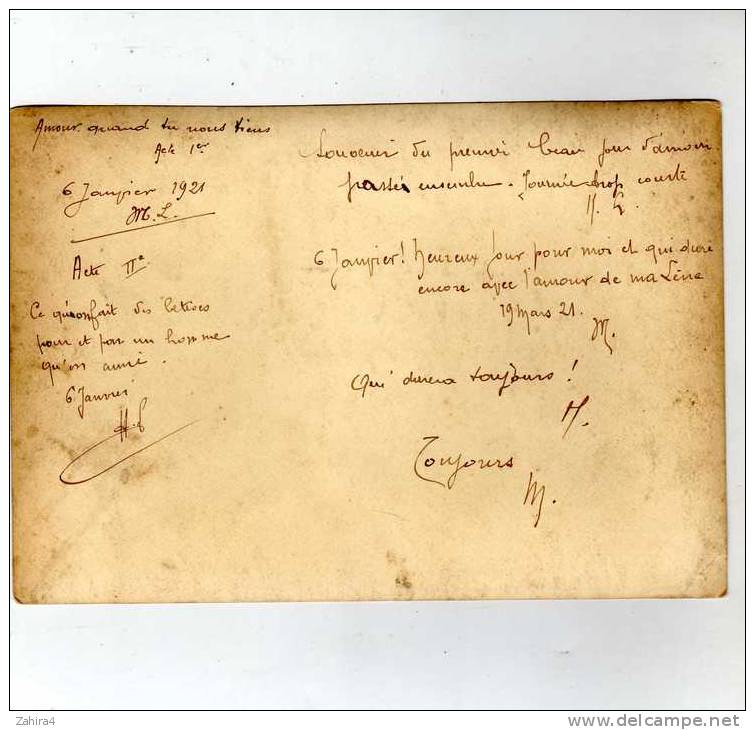 Amour quand tu nous tiens
Acte 1er
6 Janvier 1921
M. L.
Acte IIe
Ce qu'on fait des bêtises
pour et par un homme
qu'on aime.
6 Janvier
Souvenir du premier beau jour d'amour
passés ensemble. Journée trop courte
H.
6 Janvier! heureux jour pour moi et qui dure
encore avec l'amour de ma
19 Mars 21.
M.
Qui durera toujours!
H.
Toujours
M.
Zahira4
www.delcampe.net